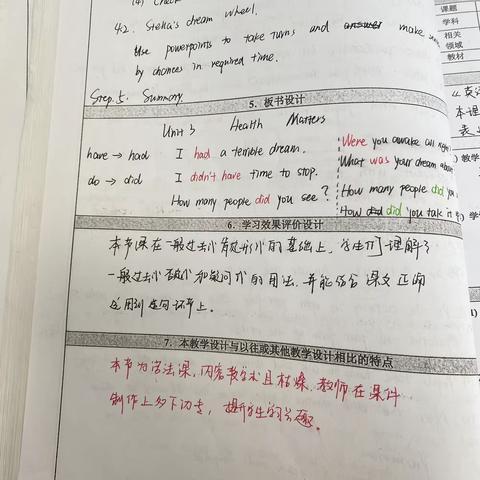 (4) Check
4.2. Stella's dream wheel.
课题
学科
相关
领域
教材
Use powerpoints to take turns and make
by chances in required time.
Step 5. Summary
5. 板书设计
Unit 3 Health Matters
have → had I had a terrible dream.
do → did I didn't have time to stop.
How many people did you see?
Were you awake all night
What was your dream about
How many people did you
How did you take it
6. 学习效果评价设计
本节课在一般过去时肯定形式的基础上, 学生们理解了
一般过去时否定式和疑问式的用法, 并能结合课文正确
运用到造句环节上。
7. 本教学设计与以往或其他教学设计相比的特点
本节为语法课, 内容较学术且枯燥, 教师在课件
制作上多下功夫, 提升学生的兴趣。